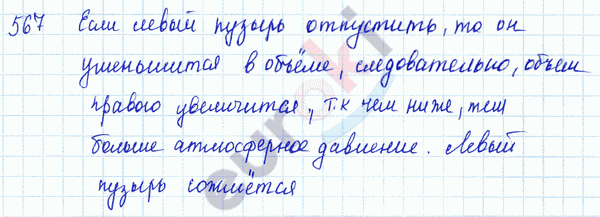 567 Если левый пузырь отпустить, то он
уменьшится в объёме, следовательно, объем
правого увеличится, т.к чем ниже, тем
больше атмосферное давление. Левый
пузырь сожмётся
euroki